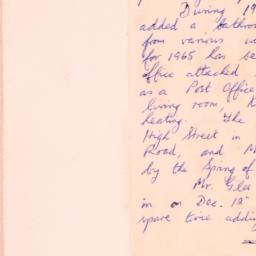 During 19
added a bathroo
from various
for 1965 has be
office attached
as a Post Office
living room,
heating. The
High Street in
Road, and M
by the Spring of
Mr. Giles
in on Dec. 12
spare time addin